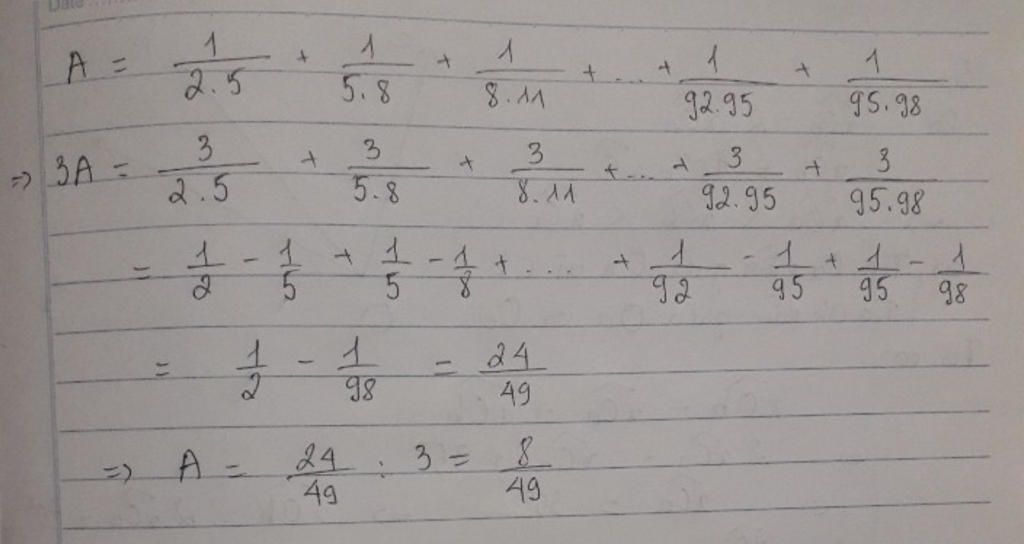 Date
A = 1/2.5 + 1/5.8 + 1/8.11 + ... + 1/92.95 + 1/95.98
=> 3A = 3/2.5 + 3/5.8 + 3/8.11 + ... + 3/92.95 + 3/95.98
= 1/2 - 1/5 + 1/5 - 1/8 + .... + 1/92 - 1/95 + 1/95 - 1/98
= 1/2 - 1/98 = 24/49
=> A = 24/49 : 3 = 8/49